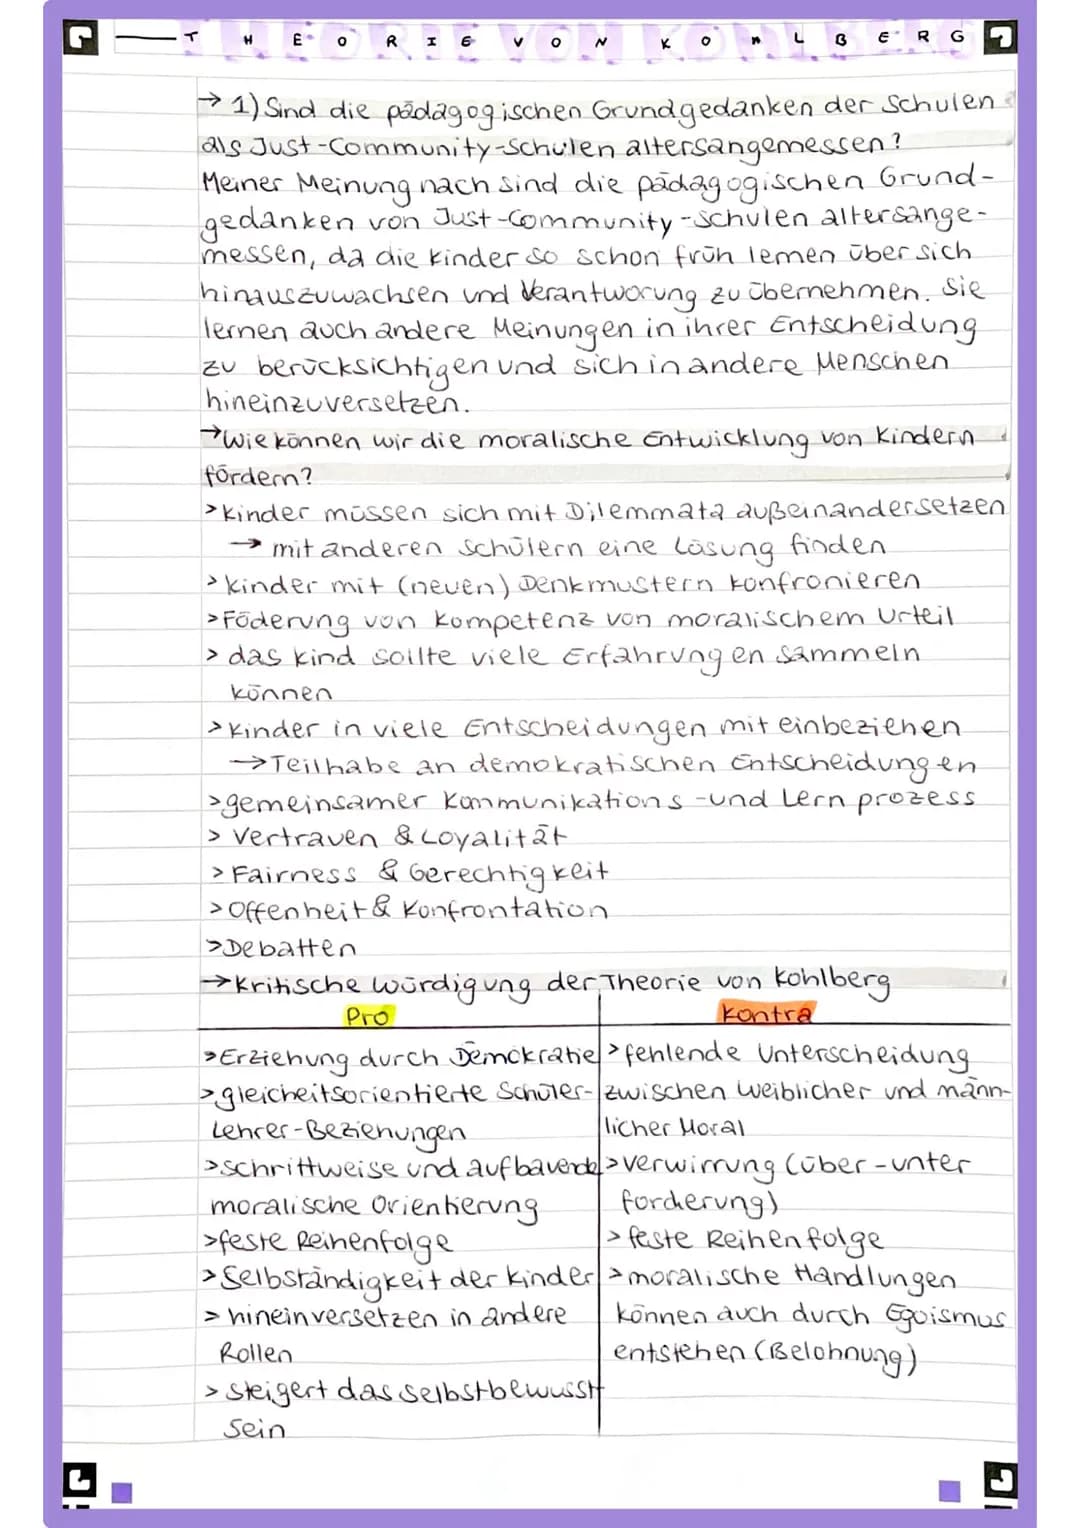 THEORIE VON KOHLBERG
→ 1) Sind die pädagogischen Grundgedanken der Schulen
als Just-Community-Schulen altersangemessen?
Meiner Meinung nach sind die pädagogischen Grund-
gedanken von Just-Community-Schulen altersange-
messen, da die Kinder so schon früh lernen über sich
hinauszuwachsen und Verantworung zu übernehmen. Sie
lernen auch andere Meinungen in ihrer Entscheidung
zu berücksichtigen und sich in andere Menschen
hineinzuversetzen.
→ Wie können wir die moralische Entwicklung von Kindern
fördern?
> Kinder müssen sich mit Dilemmata außeinandersetzen
→ mit anderen Schülern eine Lösung finden
> Kinder mit (neuen) Denkmustern konfronieren
> Föderung von Kompetenz von moralischem Urteil
> das Kind sollte viele Erfahrungen sammeln
können
> Kinder in viele Entscheidungen mit einbeziehen
→ Teilhabe an demokratischen Entscheidungen
> gemeinsamer Kommunikations -und Lernprozess
> Vertrauen & Loyalität
> Fairness & Gerechtigkeit
> Offenheit & Konfrontation
> Debatten
→ Kritische Würdigung der Theorie von Kohlberg
Pro
> Erziehung durch Demokratie
> gleicheitsorientierte Schüler-
Lehrer-Beziehungen
> schrittweise und aufbauende
moralische Orientierung
> feste Reihenfolge
> Selbständigkeit der Kinder
> hineinversetzen in andere
Rollen
> steigert das Selbstbewusst
sein
Kontra
> fehlende Unterscheidung
zwischen weiblicher und männ-
licher Moral
> Verwirrung (über-unter
forderung)
> feste Reihenfolge
> moralische Handlungen
können auch durch Egoismus
entstehen (Belohnung)